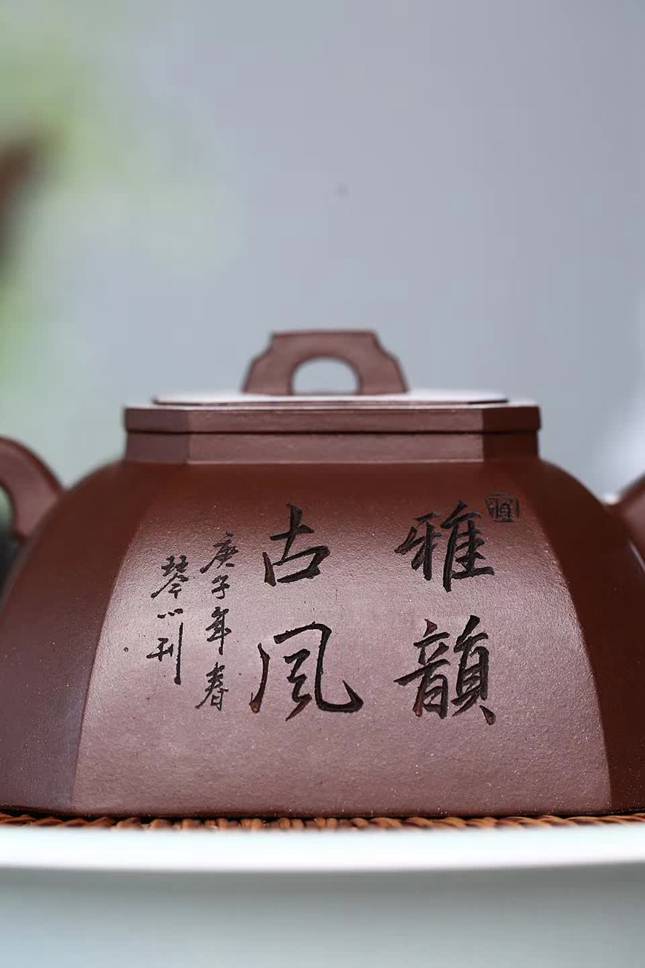 雅韻
古風
庚子年春
琴心刊